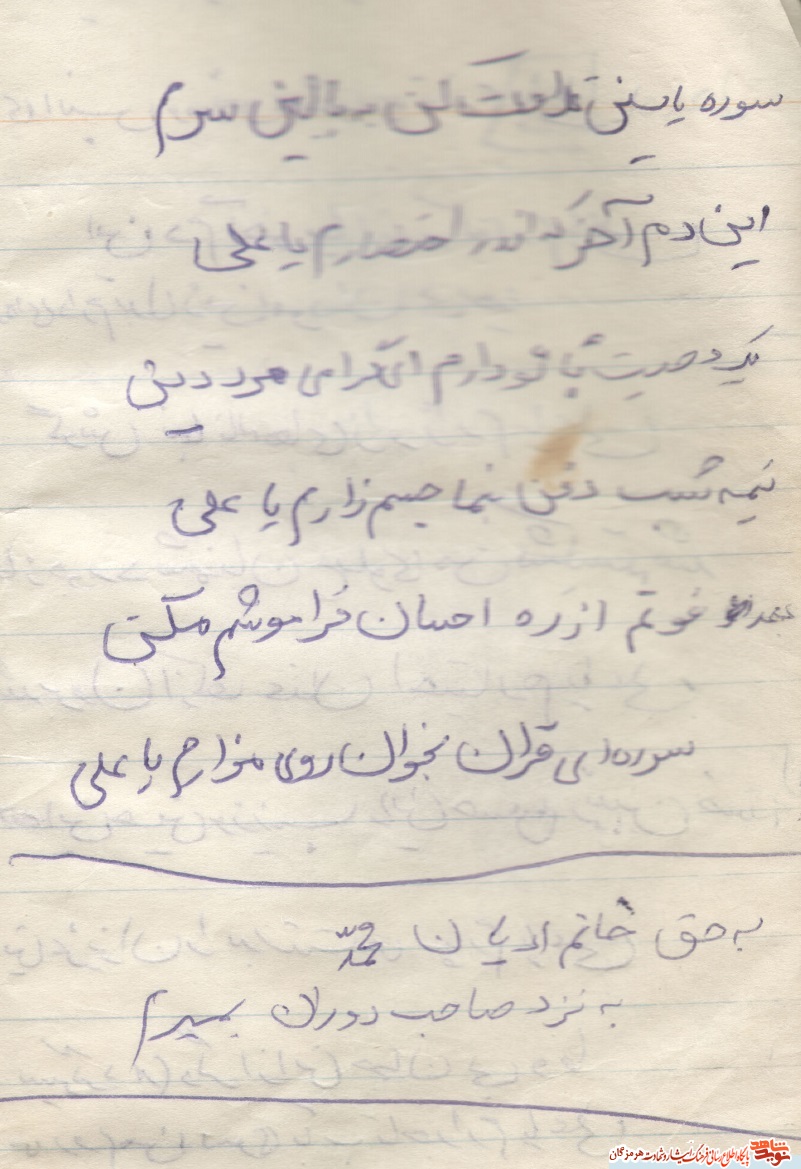 سوره یاسین تلاوت کن به بالین سرم
این دم آخر که اندر احتضارم یا علی
یک وصیت با تو دارم ای گرامی مرد دین
نیمه شب دفن نما جسم زارم یا علی
بعد فوتم از ره احسان فراموشم مکن
سوره ای قران بخوان روی مزارم یا علی
به حق خاتم ادیان محمّد
به نزد صاحب دوران بمیرم
نوید شاهد پایگاه اطلاع رسانی فرهنگ ایثار و شهادت هرمزگان